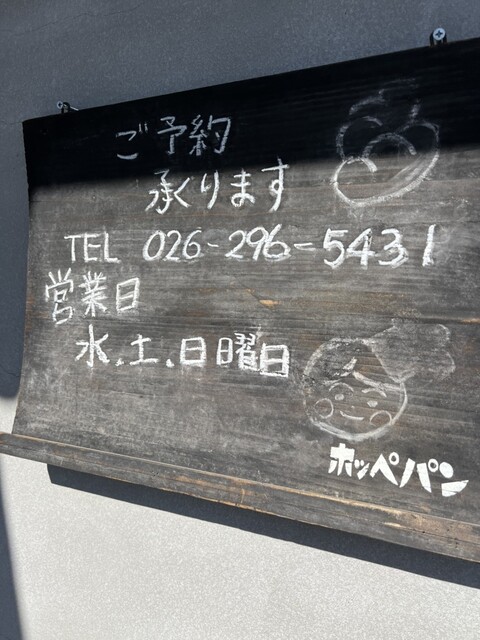 ご予約
承くります
TEL 026-296-5431
営業日
水.土.日曜日
ホッペパン